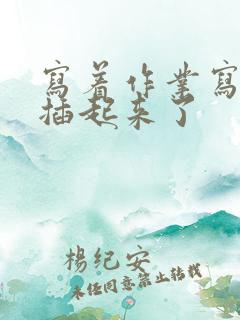 寫着作業寫
插起来了
楊纪安
未经同意禁止转载